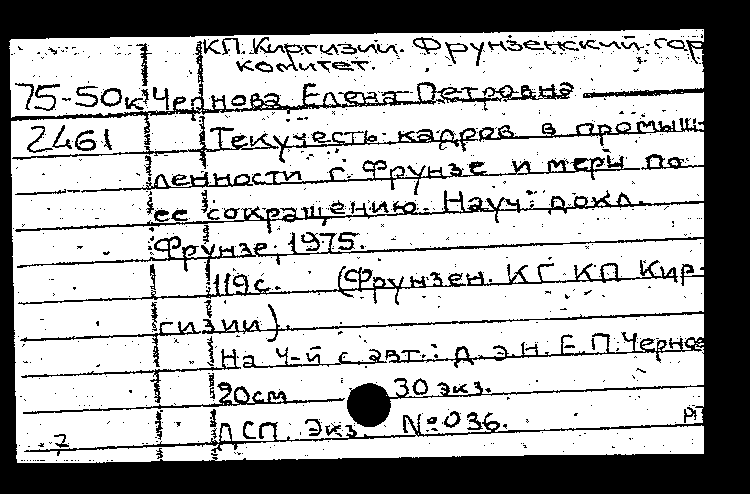 КП. Киргизии. Фрунзенский гор
комитет.
75-50к Чернова, Елена Петровна
2461 Текучесть кадров в промыш-
ленности г. Фрунзе и меры по
ее сокращению. Науч. докл.
Фрунзе, 1975.
119с. (Фрунзен. КГ КП Кир-
гизии).
На 4-й с авт.: д.э.н. Е.П.Чернов
20см 30 экз.
7 ДСП. Экз. №036.